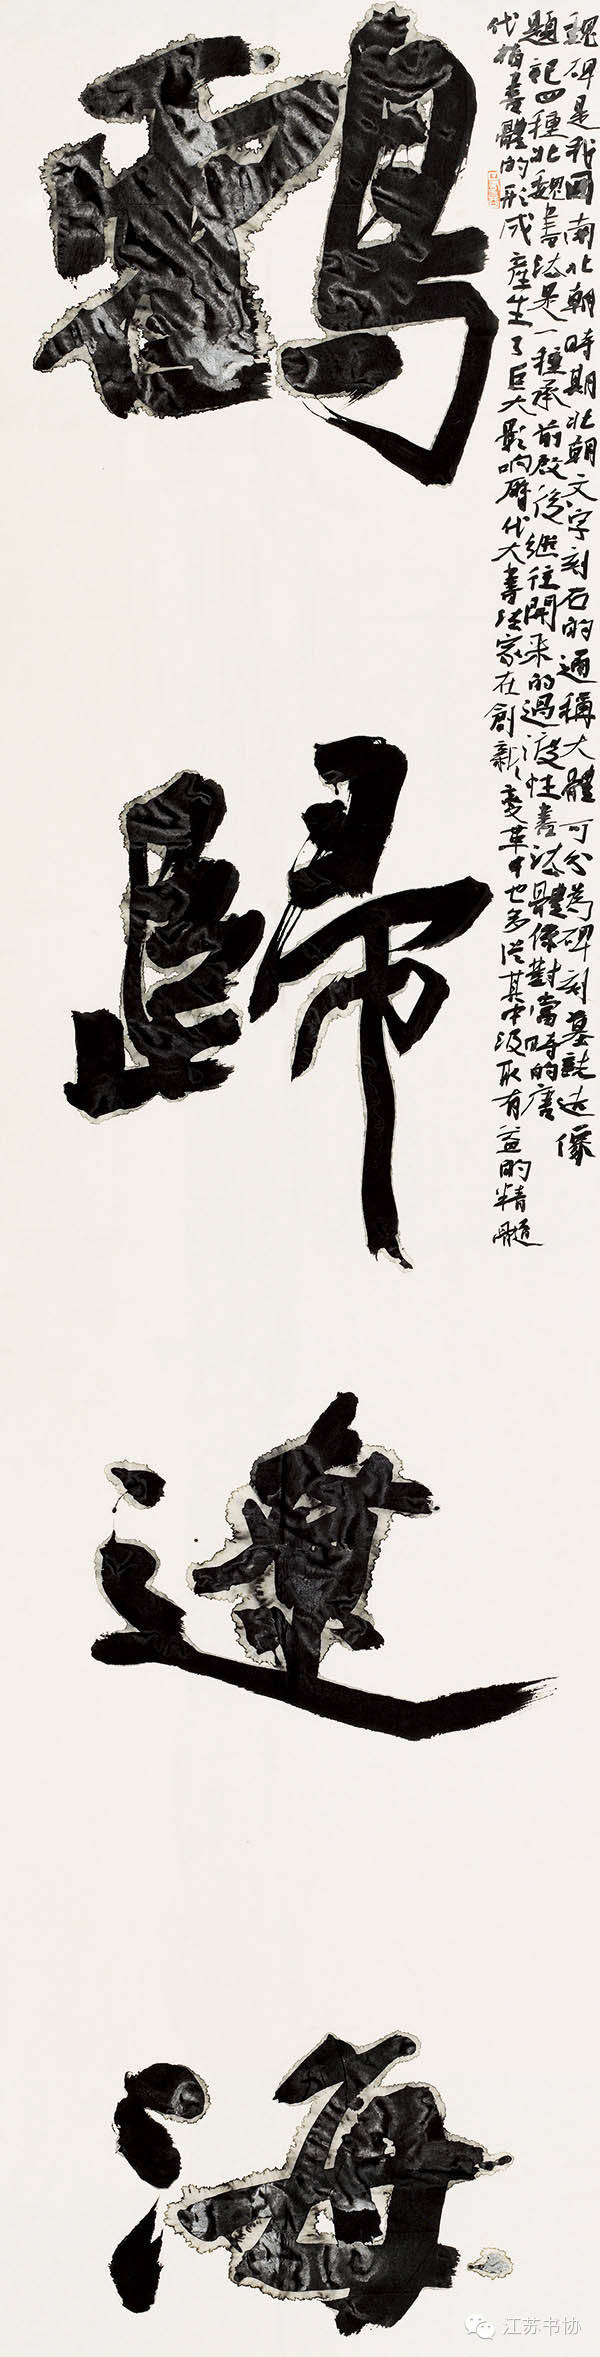 鶴歸遼海
魏碑是我国南北朝時期北朝文字刻石的通稱大體可分為碑刻墓誌造像
題記四種北魏書法是一種承前啟後繼往開來的過渡性書法體係對當時的唐
代楷書體的形成産生了巨大影响曆代大書法家在創新、變革中也多從其中汲取有益的精髓
江苏书协